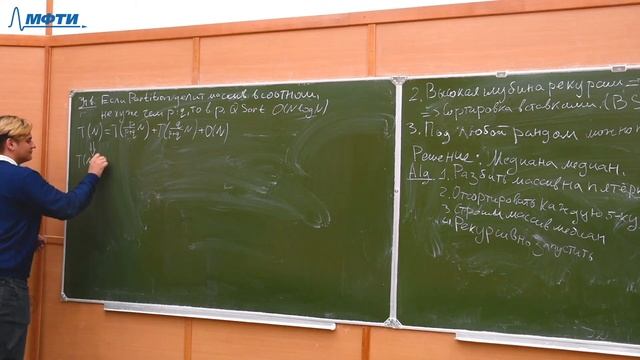 МФТИ
Утв. Если Partition делит массив в соотнош.
не хуже чем p:q, то в р. QSort O(N log N)
T(N) = T(p/(p+q) N) + T(q/(p+q) N) + O(N)
T(N
2. Высокая глубина рекурсии =
=> сортировка вставками. (В S
3. Под любой рандом можно
Решение: Медиана медиан.
Alg 1. Разбить массив на пятёр
2. Отсортировать каждую 5-ку
3 строим массив медиан
4 Рекурсивно запустить